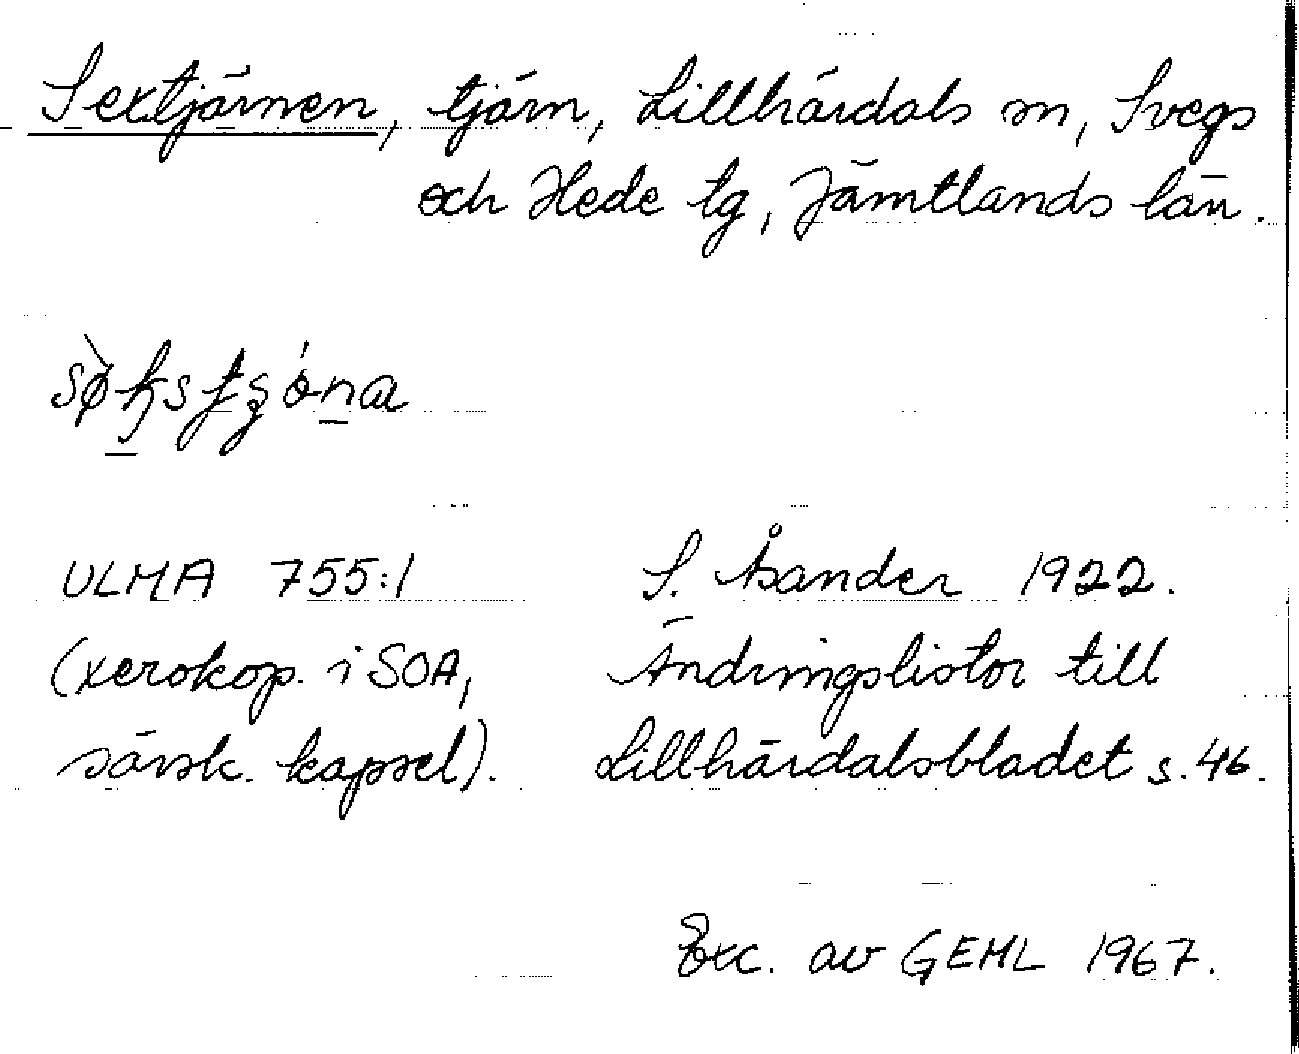 Sextjärnen, tjärn, Lillhärdals sn, Svegs
och Hede tg, Jämtlands län.
ULMA 755:1 S. Åsander 1922.
(xerokop. i SOA, Ändringslistor till
särsk. kapsel). Lillhärdalsbladet s. 46.
Exc. av GEHL 1967.